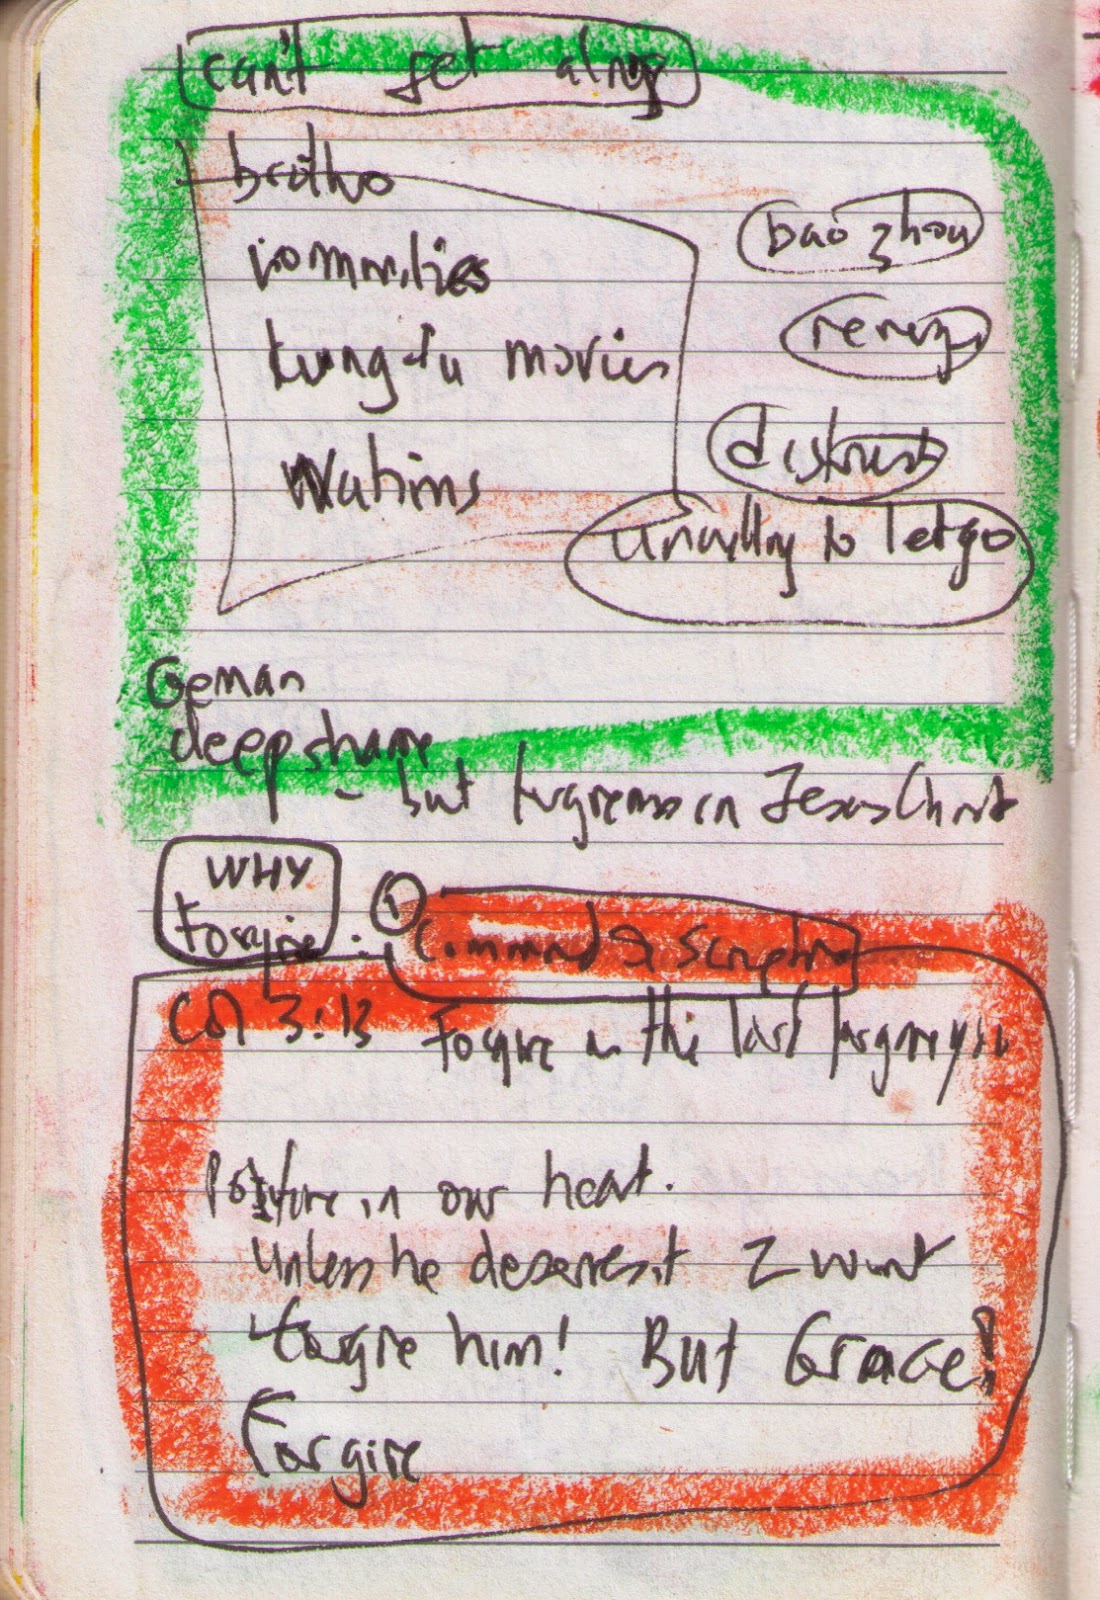 can't get along
brothers
communities
kung-fu movies
Nations
bao zhou
revenge
distrust
unwilling to let go
German
deep shame
- but forgiveness in Jesus Christ
WHY
forgive :
① Command & Scripture
Col 3:13 Forgive as the Lord forgave you
Posture in our heart.
Unless he deserves it I won't
forgive him! But Grace!
Forgive